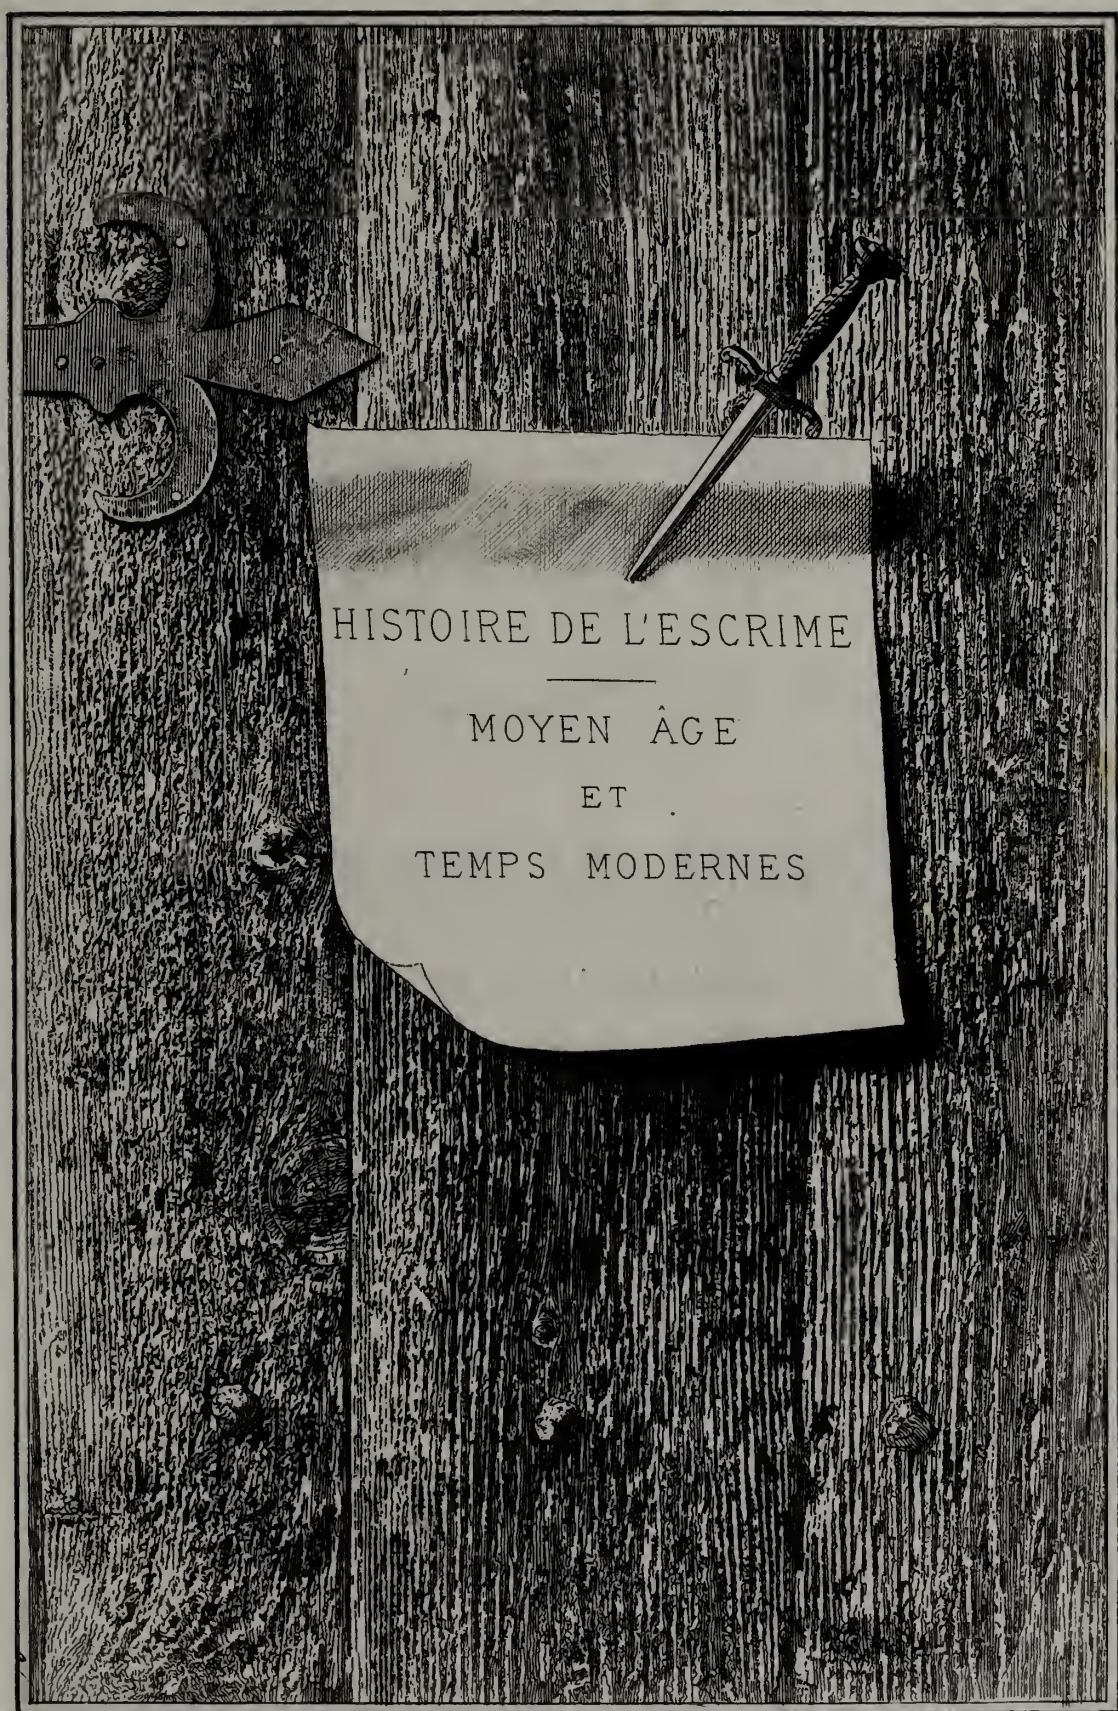 HISTOIRE DE L'ESCRIME
MOYEN ÂGE
ET
TEMPS MODERNES